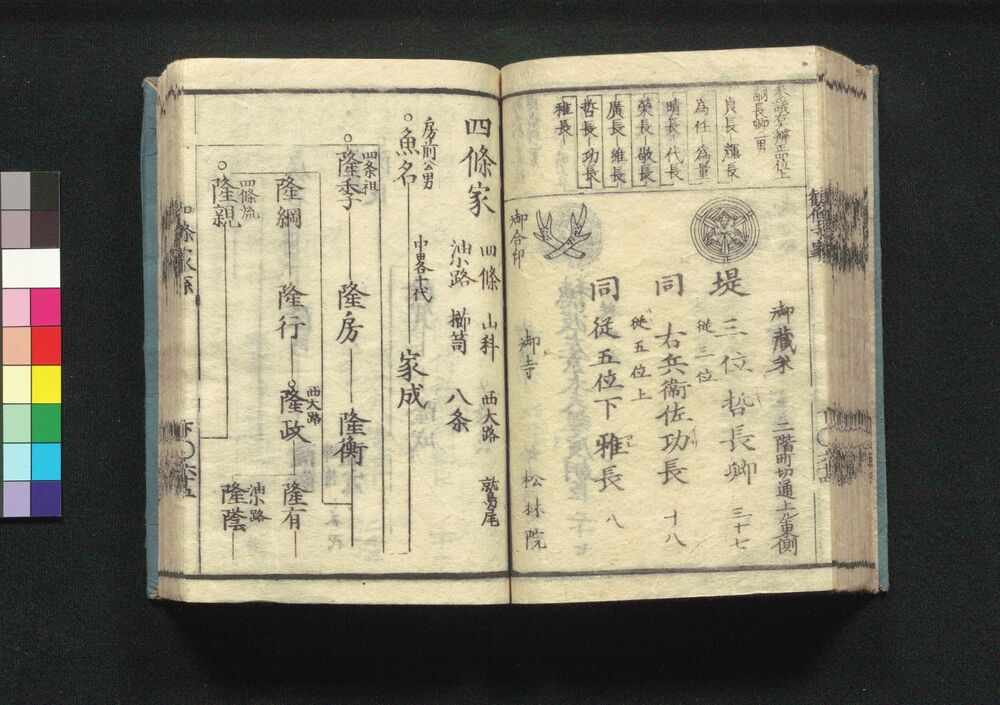 参議右大弁正四位上
嗣長卿二男
貞長 䕃長
為任 為量
晴長 代長
榮長 敬長
廣長 維長
哲長 功長
雅長
御蔵米 二階町切通上ル東側
堤 三位哲長卿 三十七
従三位
同 右兵衛佐功長 十八
従五位上
同 従五位下雅長 八
御合印 御寺 松林院
四條家
四條 山科 西大路 鷲尾
油小路 櫛笥 八条
房前公男
魚名 中畧十代 家成
四条祖
隆季 隆房 隆衡
西大路
隆綱 隆行 隆政 隆有
四條流 油小路
隆親 隆蔭
四條家系